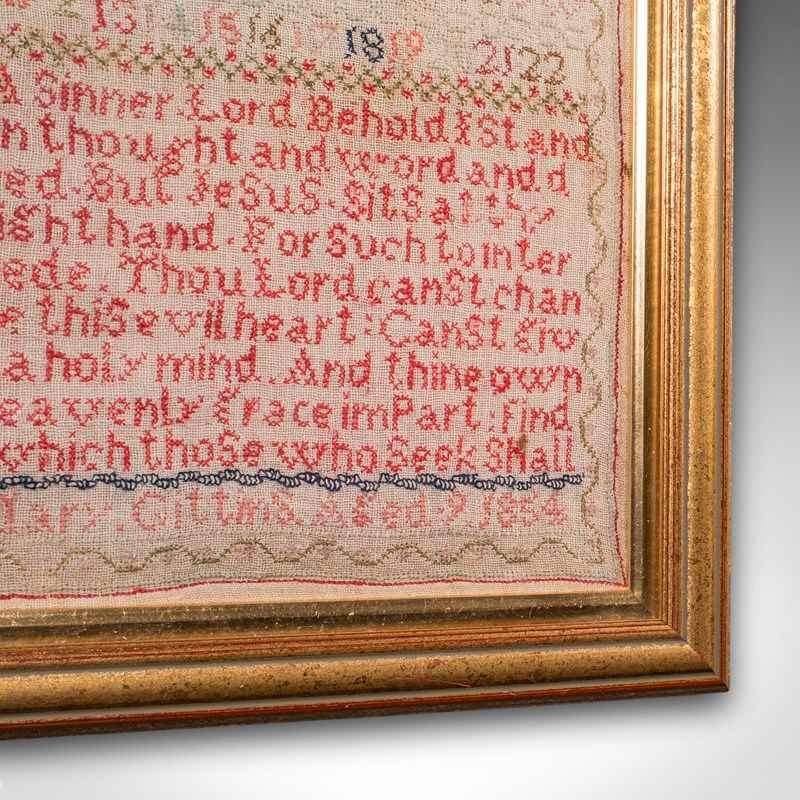 13 14 15 16 17 18 19 21 22
A Sinner Lord Behold I Stand
n thought and word and d
ed. But JeSuS. Sits at thy
ight hand. For Such to inter
ede. Thou Lord canSt chan
e this evil heart: CanSt Giv
a holy mind. And thine own
eavenly Grace imPart: find
which thoSe who Seek Shall
Mary. GittinS. AGed. 9 1854